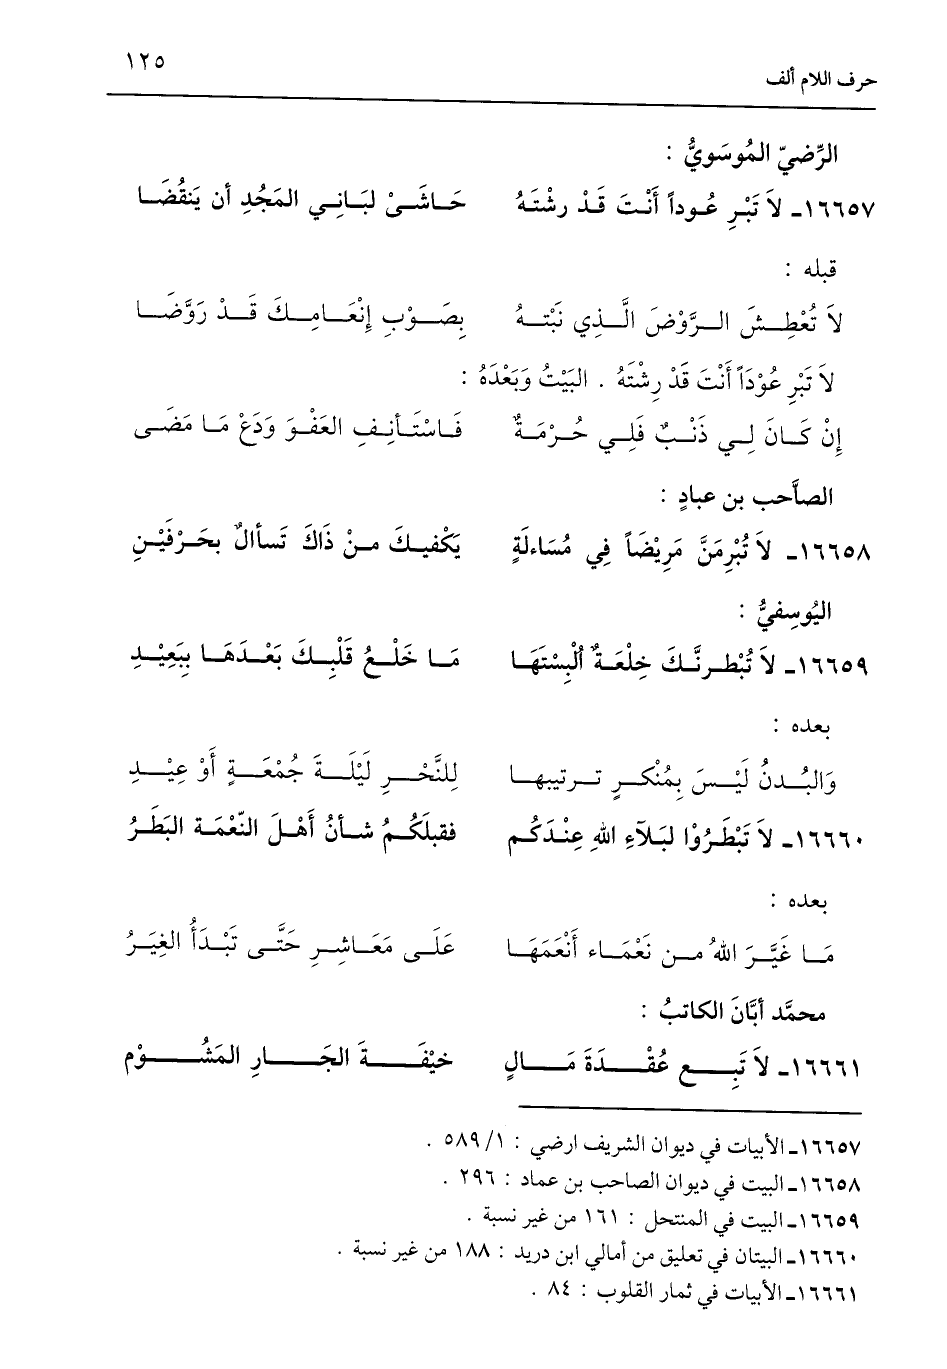 حرف اللام ألف ١٢٥
الرِّضيّ المُوسَويُّ :
١٦٦٥٧ـ لاَ تَبْرِ عُوداً أَنْتَ قَدْ رِشْتَهُ حَاشَىْ لبَانِي المَجُدِ أن يَنقُضَا
قبله :
لاَ تُعْطِشَ الرَّوْضَ الَّذِي نَبْتهُ بِصَوْبِ إنْعَامِكَ قَدْ رَوَّضَا
لاَ تَبْرِ عُوْدَاً أنْتَ قَدْ رِشْتَهُ . البَيْتُ وَبَعْدَهُ :
إنْ كَانَ لِي ذَنْبٌ فَلِي حُرْمَةٌ فَاسْتَأنِفِ العَفْوَ وَدَعْ مَا مَضَى
الصاَّحب بن عبادٍ :
١٦٦٥٨ـ لاَ تُبْرِمَنَّ مَرِيْضَاً فِي مُسَاءلَةٍ يَكْفيكَ منْ ذَاكَ تَسأالٌ بحَرْفَيْنِ
اليُوسِفيُّ :
١٦٦٥٩ـ لاَ تُبْطرنَّكَ خِلْعَةٌ ألْبِسْتَهَا مَا خَلْعُ قَلْبِكَ بَعْدَهَا بِبَعِيْدِ
بعده :
وَالبُدنُ لَيْسَ بِمُنْكرٍ ترتيبها لِلنَّحْرِ لَيْلَةَ جُمْعَةٍ أوْ عِيْدِ
١٦٦٦٠ـ لاَ تَبْطَرُوْا لبَلآءِ اللهِ عِنْدَكُم فقبلَكُمُ شأنُ أهْلَ النّعْمَة البَطَرُ
بعده :
مَا غَيَّرَ اللهُ من نَعْمَاء أنْعَمَهَا عَلَى مَعَاشِرِ حَتَّى تَبْدَأُ الغِيَرُ
محمَّد أبَّانَ الكاتبُ :
١٦٦٦١ـ لاَ تَبِع عُقْدَةَ مَالٍ خيْفَةَ الجَارِ المَشُوْم
١٦٦٥٧ـ الأبيات في ديوان الشريف ارضي : ١/ ٥٨٩ .
١٦٦٥٨ـ البيت في ديوان الصاحب بن عماد : ٢٩٦ .
١٦٦٥٩ـ البيت في المنتحل : ١٦١ من غير نسبة .
١٦٦٦٠ـ البيتان في تعليق من أمالي ابن دريد : ١٨٨ من غير نسبة .
١٦٦٦١ـ الأبيات في ثمار القلوب : ٨٤ .